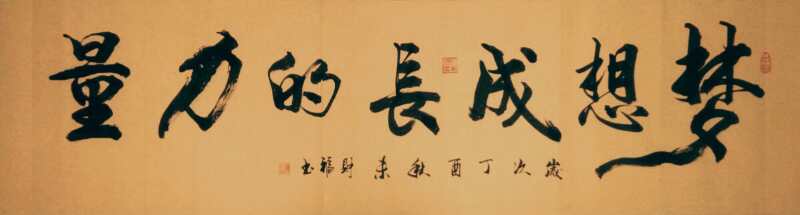 梦想成長的力量
歲次丁酉秋
福书